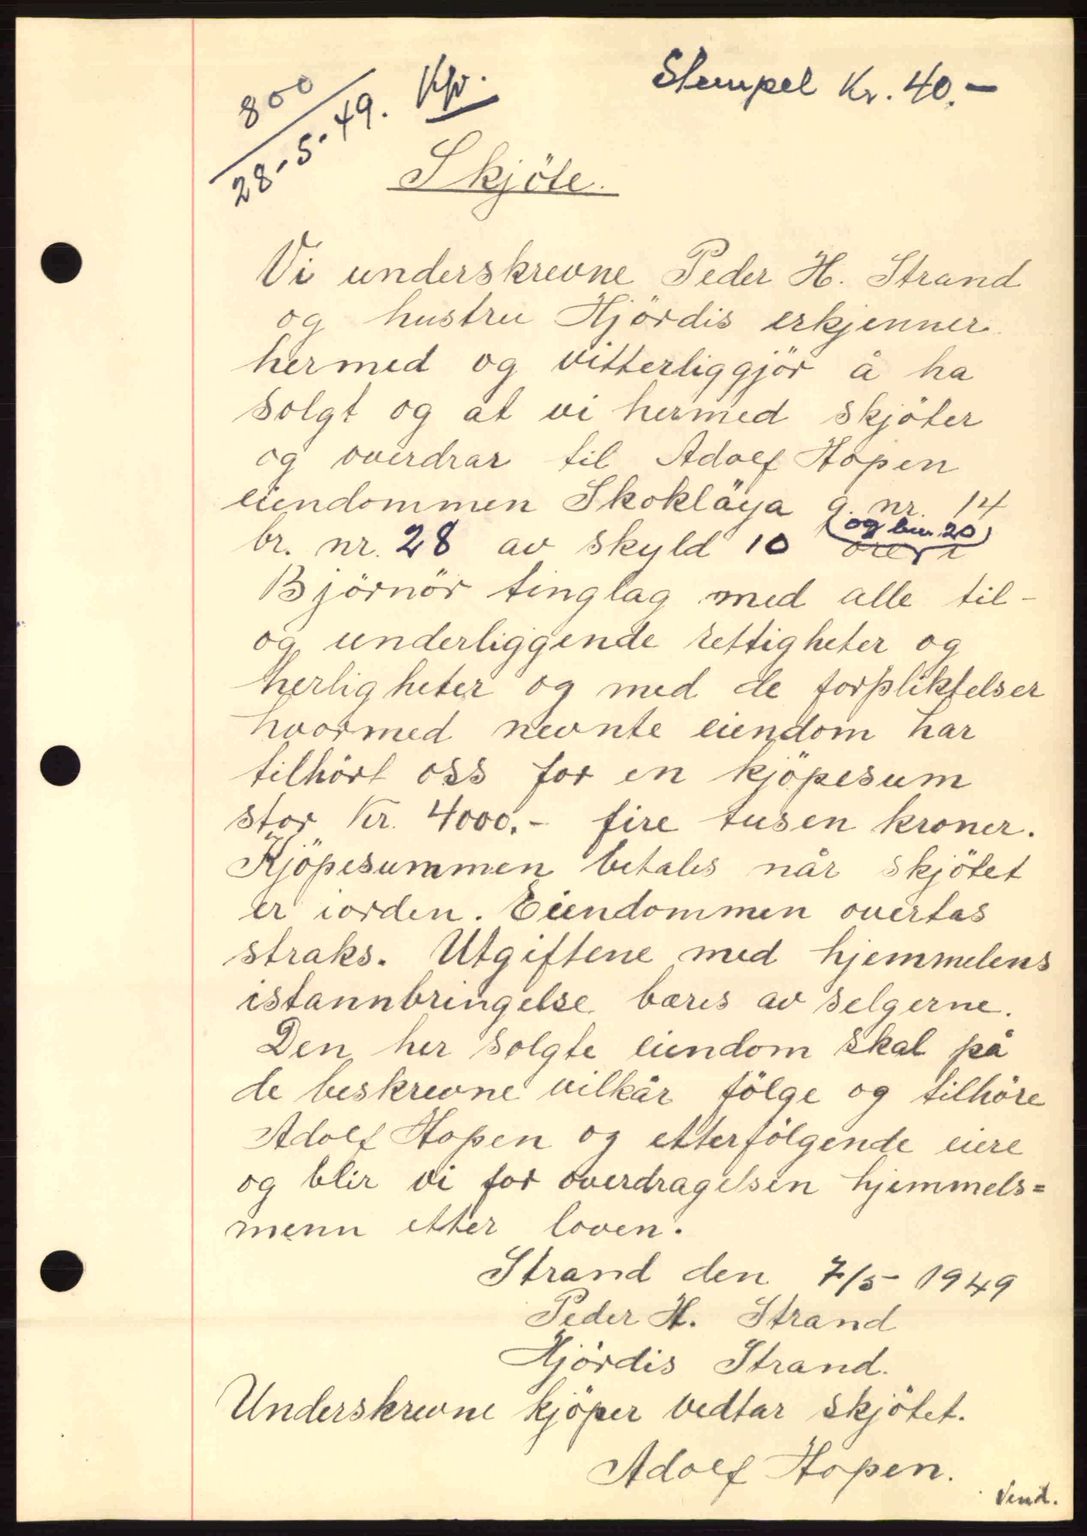 800
28-5-49. Kfr.
Stempel Kr. 40.-
Skjöte.
Vi underskrevne Peder H. Strand
og hustru Hjördis erkjenner
hermed og vitterliggjör å ha
solgt og at vi hermed skjöter
og overdrar til Adolf Hopen
eiendommen Skokläya g. nr. 14
og bnr. 20
br. nr. 28 av skyld 10 öre i
Björnör tinglag med alle til-
og underliggende rettigheter og
herligheter og med de forpliktelser
hvormed nevnte eiendom har
tilhört oss for en kjöpesum
stor Kr. 4000.- fire tusen kroner.
Kjöpesummen betales når skjötet
er iorden. Eiendommen overtas
straks. Utgiftene med hjemmelens
istannbringelse bæres av selgerne.
Den her solgte eiendom skal på
de beskrevne vilkår fölge og tilhöre
Adolf Hopen og etterfölgende eiere
og blir vi for overdragelsen hjemmels=
menn etter loven.
Strand den 7/5- 1949
Peder H. Strand
Hjördis Strand.
Underskrevne kjöper vedtar skjötet.
Adolf Hopen.
Vend.